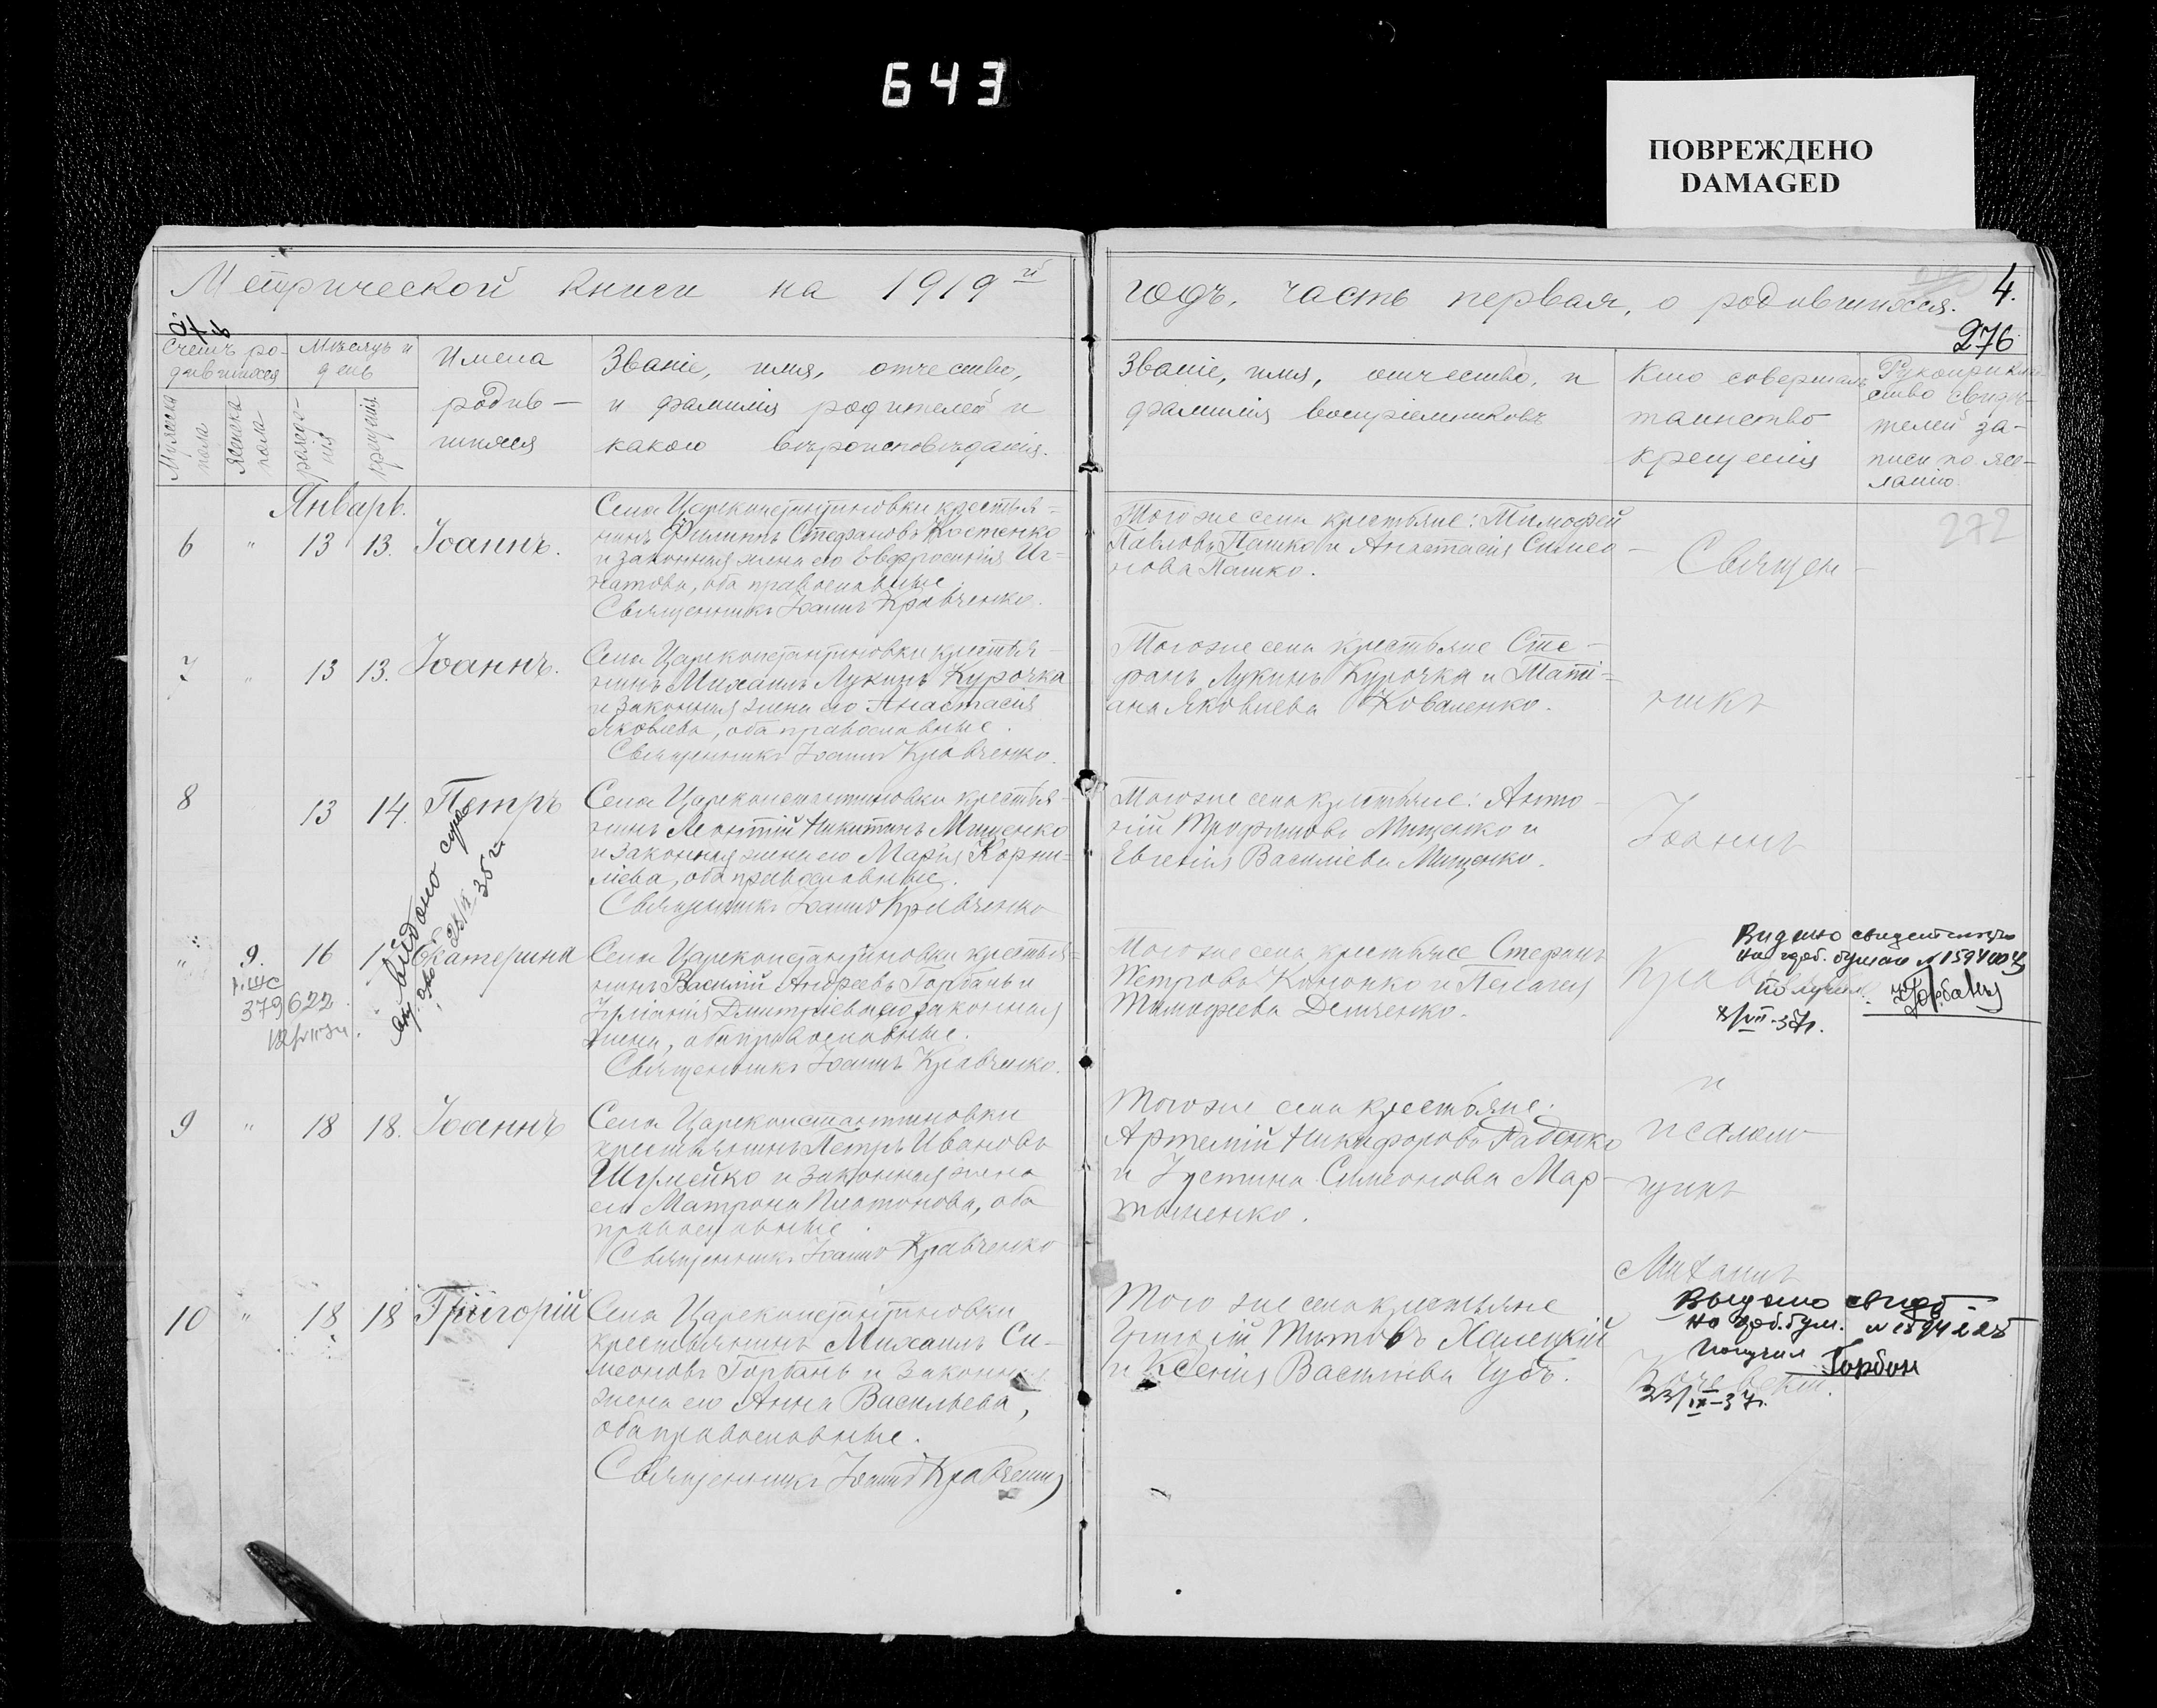 643
ПОВРЕЖДЕНО
DAMAGED
Метрической книги на 1919 й
годъ, часть первая, о родившихся.
4.
276
Счетъ ро-
дившихся
Мужеска пола
Женска пола
Мѣсяцъ и
день
рожде-
нія
крещенія
Имена
родив-
шихся
Званіе, имя, отчество,
и фамилія родителей и
какого вѣроисповѣданія.
Званіе, имя, отчество, и
фамилія воспріемниковъ
Кто совершалъ
таинство
крещенія
Рукоприклад
ство свидѣ-
телей за-
писи по же-
ланію
272
Январь.
6 " 13 13. Іоаннъ.
Села Цареконстантиновки крестья-
нинъ Филиппъ Стефановъ Костенко
и законная жена его Евфросинія Иг-
натова, оба православные.
Священникъ Іоаннъ Кравченко.
Того же села крестьяне: Тимофей
Павловъ Пашко и Анастасія Симео-
нова Пашко.
Священ-
7 " 13 13. Іоаннъ.
Села Цареконстантиновки крестья-
нинъ Михаилъ Лукинъ Курочка
и законная жена его Анастасія
Яковлева, оба православные.
Священникъ Іоаннъ Кравченко.
Того же села крестьяне Сте-
фанъ Лукинъ Курочка и Таті-
ана Яковлева Коваленко.
никъ
8 13 14. Петръ
Села Цареконстантиновки крестья-
нинъ Леонтій Никитинъ Мищенко
и законная жена его Марія Корни-
лева, оба православные.
Священникъ Іоаннъ Кравченко
Того же села крестьяне: Анто-
ній Трофимовъ Мищенко и
Евгенія Василіева Мищенко.
Іоаннъ
видано
35 г.
" 9. 16 Екатерина
379622
Села Цареконстантиновки крестья-
нинъ Василій Андреевъ Горбань и
Іуліанія Дмитріева его законная
жена, оба православные.
Священникъ Іоаннъ Кравченко.
Того же села крестьяне Стефанъ
Петровъ Кононко и Пелагія
Тимофеева Демченко.
Видано свидетельство
на гдб. бумаге №
получил Горбань
VII-37г.
и
9 " 18 18. Іоаннъ
Села Цареконстантиновки
крестьянинъ Петръ Ивановъ
Шурмейко и законная жена
его Матрона Платонова, оба
православные.
Священникъ Іоаннъ Кравченко
Того же села крестьяне:
Артемій Никифоровъ Раденко
и Іустина Симеонова Мар-
тыненко.
псалом-
щикъ
Михаилъ
10 " 18 18 Григорій
Села Цареконстантиновки
крестьянинъ Михаилъ Си-
меоновъ Горбань и законная
жена его Анна Васильева,
оба православные.
Священникъ Іоаннъ Кравченко
Того же села крестьяне
Титовъ Халецкій
и Ксенія Васильева Чубъ.
Выдано свидет.
на гдб. бум. №
Получил Горбан
23/IX-37г.